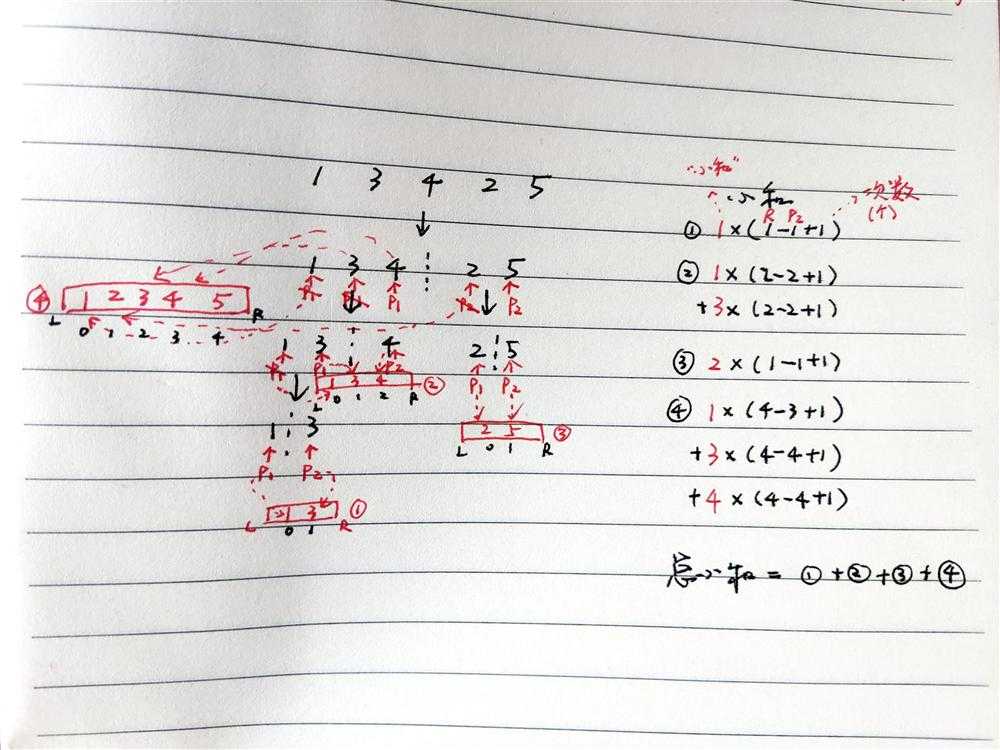 1 3 4 2 5
"小和"
小和
次数
(个)
R P2
① 1×(1-1+1)
1 3 4 2 5
P1 P1 P2 P2
② 1×(2-2+1)
+3×(2-2+1)
④ 1 2 3 4 5
L 0 1 2 3 4 R
1 3 4 2 5
P1 P2 P1 P2
1 3 4 ②
L 0 1 2 R
③ 2×(1-1+1)
④ 1×(4-3+1)
1 3
2 5 ③
L 0 1 R
+3×(4-4+1)
P1 P2
+4×(4-4+1)
1 3 ①
L 0 1 R
总小和 = ①+②+③+④